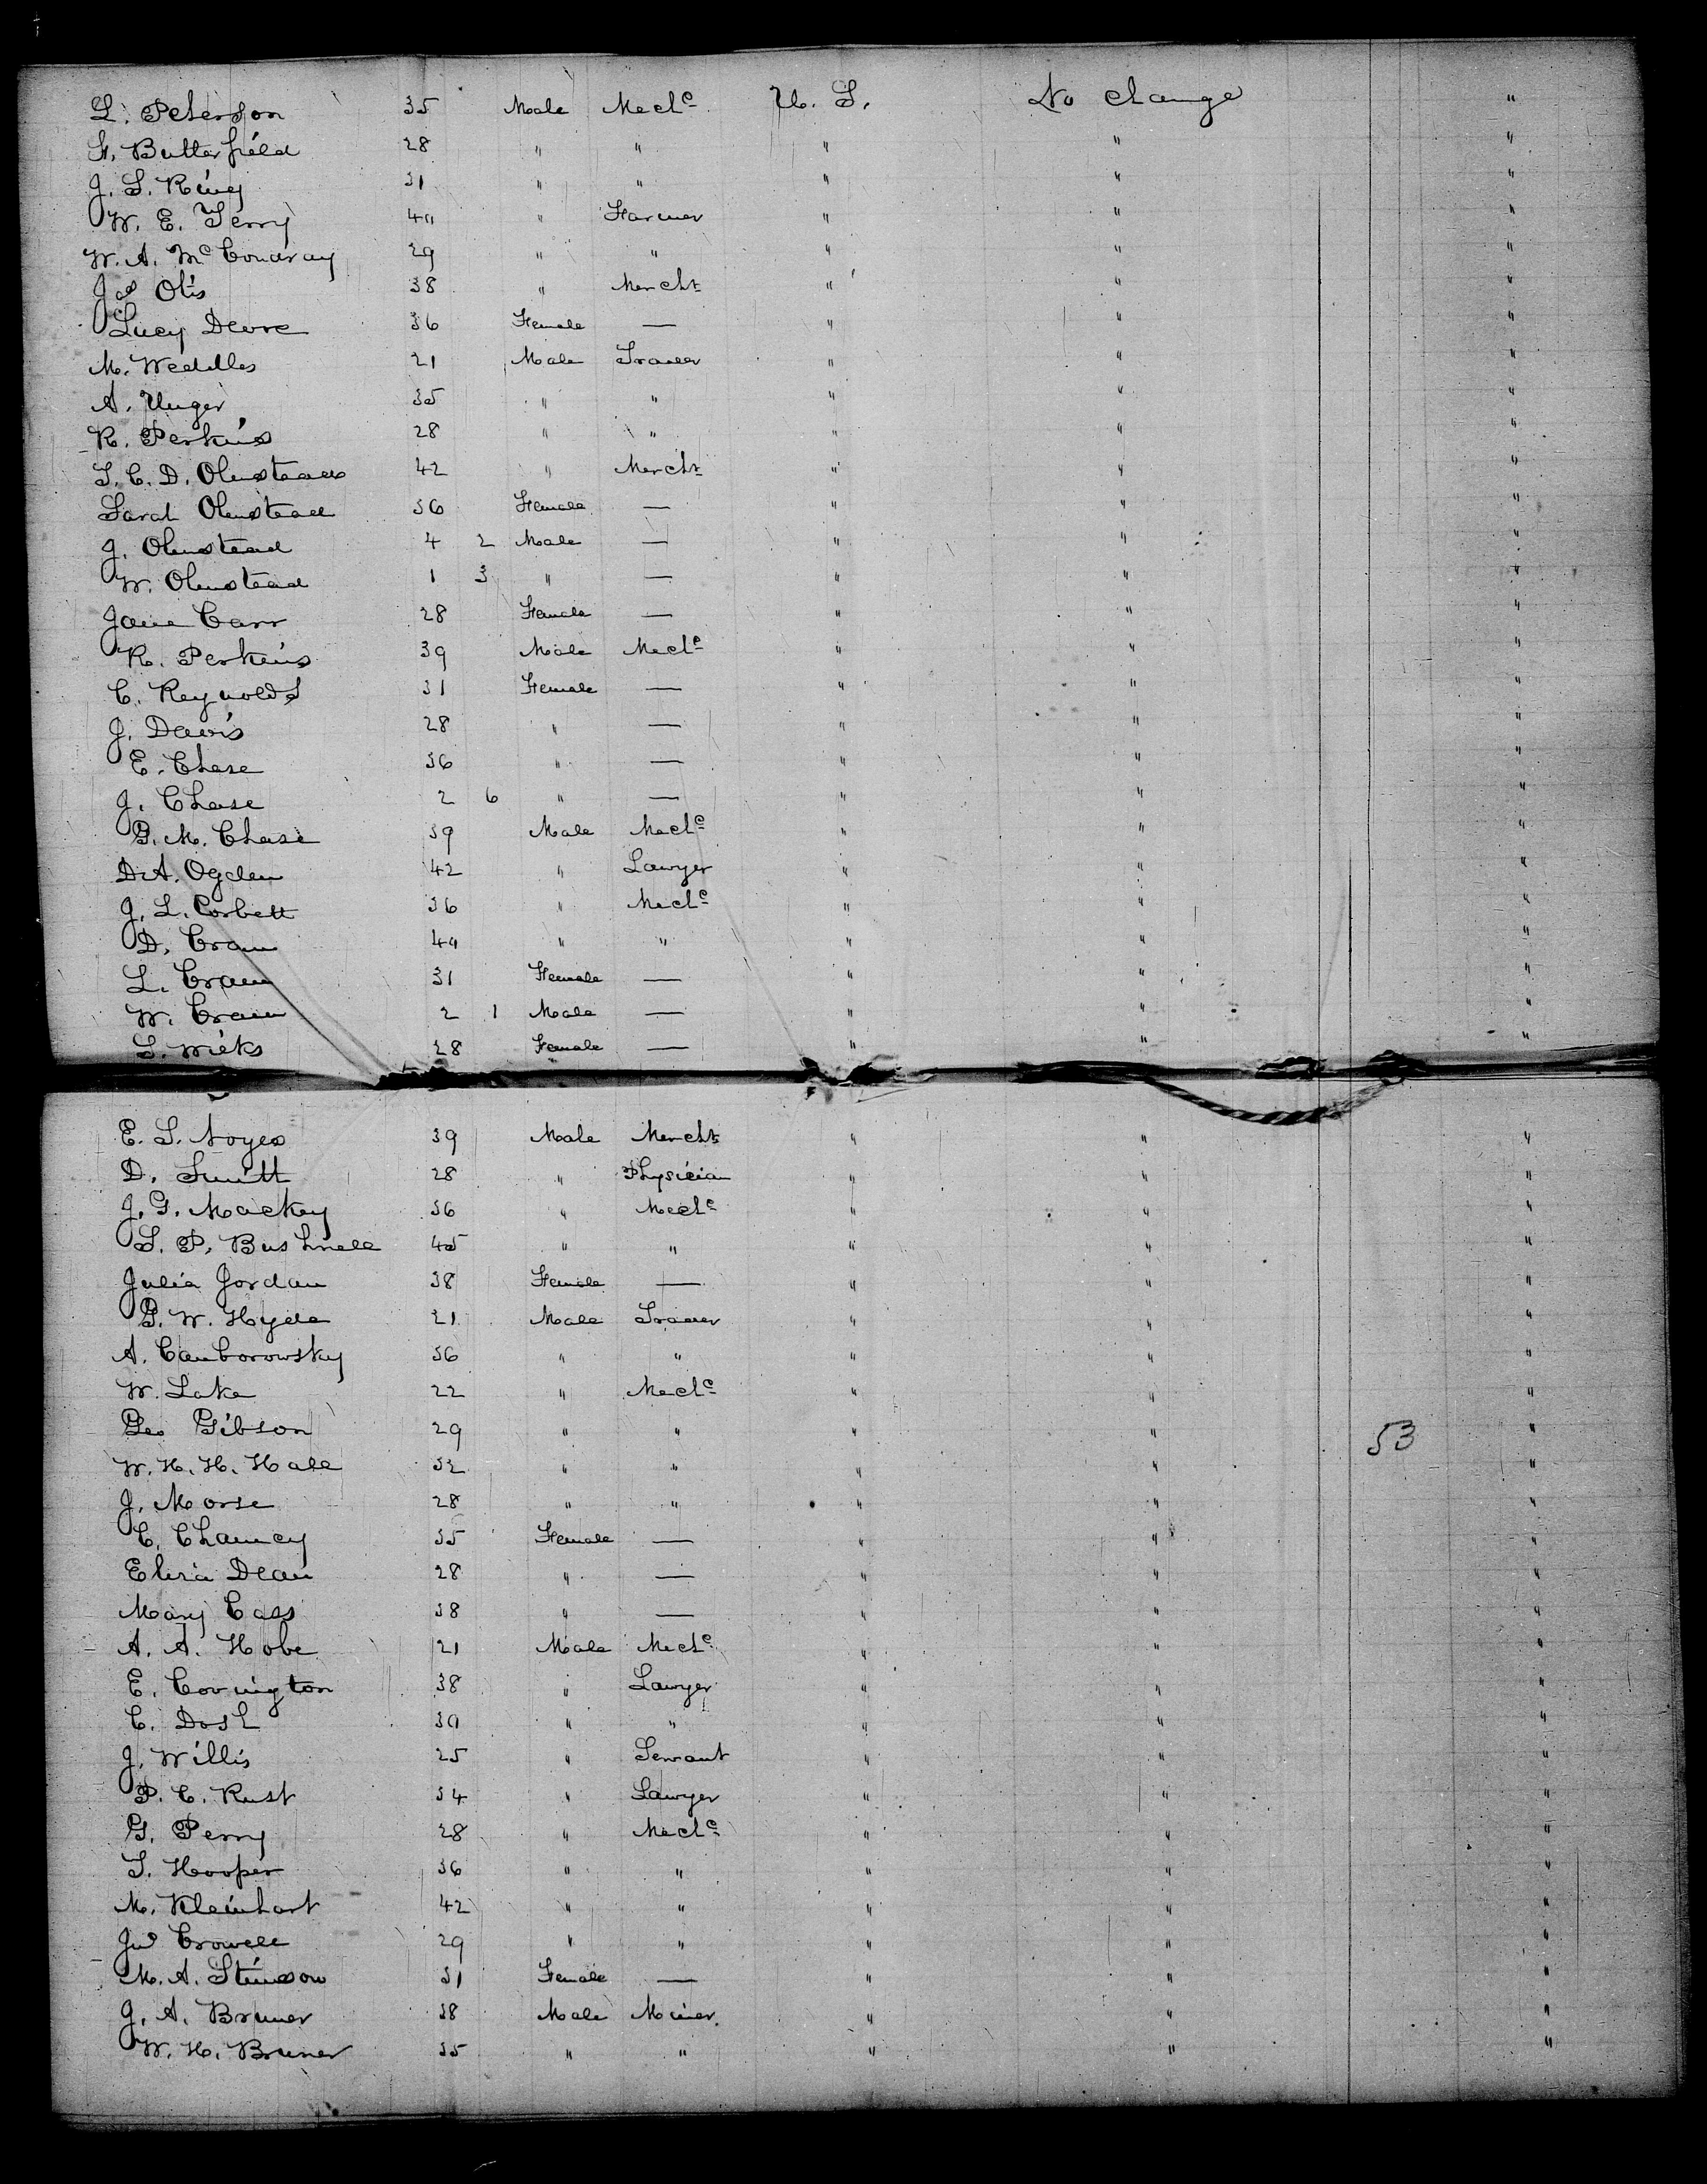 L. Peterson 35 Male Mech^c U. S. No change "
S. Butterfield 28 " " " " "
J. S. King 31 " " " " "
W. E. Terry 40 " Farmer " " "
W. A. McCondray 29 " " " " "
Jas Otis 38 " Mercht " " "
Lucy Deore 36 Female — " " "
M. Weddles 21 Male Trader " " "
A. Unger 35 " " " " "
R. Perkins 28 " " " " "
S. C. D. Olmstead 42 " Mercht " " "
Sarah Olmstead 36 Female — " " "
J. Olmstead 4 2 Male — " " "
W. Olmstead 1 3 " — " " "
Jane Carr 28 Female — " " "
R. Perkins 39 Male Mech^c " " "
C. Reynolds 31 Female — " " "
J. Davis 28 " — " " "
E. Chase 36 " — " " "
J. Chase 2 6 " — " " "
G. M. Chase 39 Male Mech^c " " "
D. A. Ogden 42 " Lawyer " " "
J. L. Corbett 36 " Mech^c " " "
D. Cram 40 " " " " "
L. Cram 31 Female — " " "
W. Cram 2 1 Male — " " "
S. Wicks 28 Female — " " "
E. S. Noyes 39 Male Mercht " " "
D. Smith 28 " Physician " " "
J. G. Mackey 36 " Mech^c " " "
S. P. Bushnell 45 " " " " "
Julia Jordan 38 Female — " " "
G. W. Hyde 21 Male Trader " " "
A. Camborowsky 36 " " " " "
W. Lake 22 " Mech^c " " "
Geo Gibson 29 " " " " 53 "
W. H. H. Hall 32 " " " " "
J. Morse 28 " " " " "
C. Chauncey 35 Female — " " "
Eliza Dean 28 " — " " "
Mary Cass 38 " — " " "
A. A. Hobe 21 Male Mech^c " " "
E. Covington 38 " Lawyer " " "
C. Dosh 30 " " " " "
J. Willis 25 " Servant " " "
P. C. Rust 34 " Lawyer " " "
G. Perry 28 " Mech^c " " "
S. Hooper 36 " " " " "
M. Kleinhart 42 " " " " "
Jno Crowell 29 " " " " "
M. A. Stimson 31 Female — " " "
J. A. Bruner 38 Male Miner " " "
W. H. Bruner 35 " " " " "